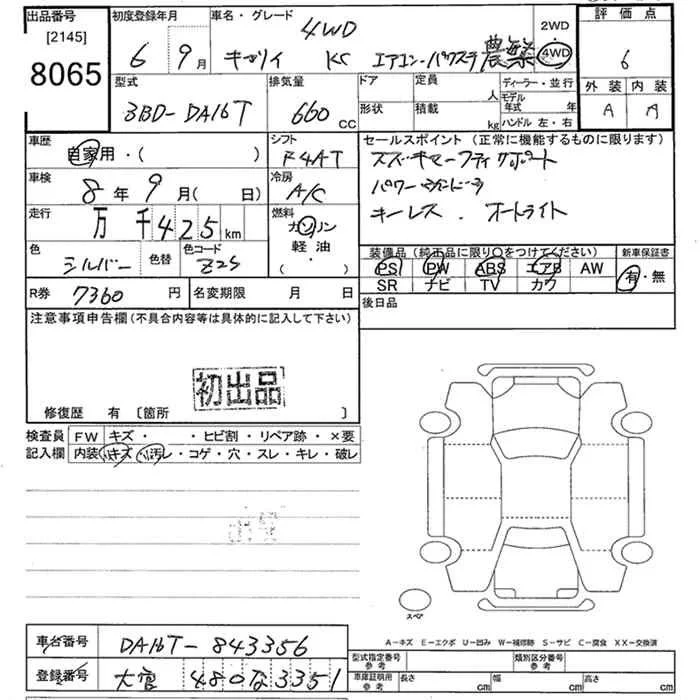 出品番号
[2145]
8065
初度登録年月
6 9月
車名・グレード
4WD
キャリイ KC エアコン・パワステ 農繁
2WD
4WD
評価点
6
外装 内装
A A
型式
3BD-DA16T
排気量
660 CC
ドア
定員
人
ディーラー・並行
モデル年式 年
形状
積載
kg
ハンドル 左・右
車歴
自家用・( )
シフト
F4AT
車検
8年9月( 日)
冷房
A/C
走行
万千425km
燃料
ガソリン
軽油
( ・ )
色
シルバー
色替
色コード
Z2S
R券
7360円
名変期限 月 日
セールスポイント(正常に機能するものに限ります)
スズキセーフティサポート
パワーウインドウ
キーレス . オートライト
装備品(純正品に限り○をつけてください)
PS PW ABS エアB AW
SR ナビ TV カワ
新車保証書
有・無
後日品
注意事項申告欄(不具合内容等は具体的に記入して下さい)
初出品
修復歴 有 〔箇所 〕
検査員
記入欄
FW キズ・ ・ヒビ割・リペア跡・×要
内装 小キズ・小汚レ・コゲ・穴・スレ・キレ・破レ
スペア
A-キズ E-エクボ U-凹み W-補修跡 S-サビ C-腐食 XX-交換済
車台番号
DA16T-843356
登録番号
大宮 480 な 3351
型式指定番号
参考
類別区分番号
参考
車庫証明用
参考
長さ cm
幅 cm
高さ cm